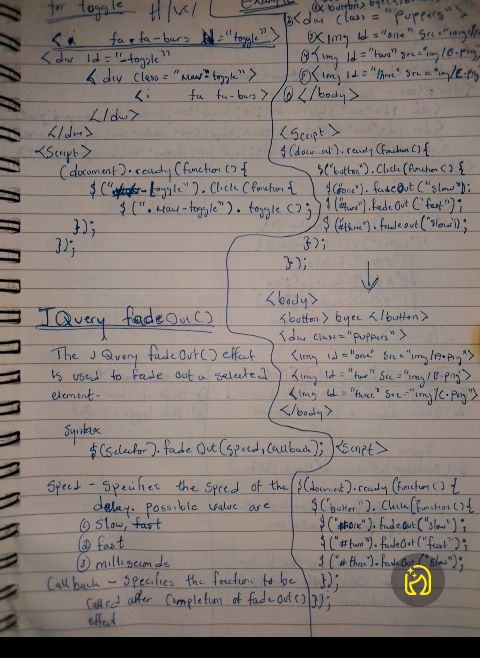 for toggle
< i fa fa-bars id="toggle">
<div id = "-toggle">
< div class = "Nav-toggle">
<i fa fa-bars >
</div>
</div>
<Script>
(document).ready(function () {
$("-toggle").Click(function {
$(".Nav-toggle").toggle ();
});
});
JQuery fadeOut()
The JQuery fadeOut() effect
is used to fade out a selected
element-
Syntax
$(Selector).fadeOut(speed,callback);
Speed - Specifies the speed of the
delay. possible value are
① Slow, fast
② fast
③ milliseconds
Callback - Specifies the function to be
called after Completion of fadeOut()
effect
Example
<div class = "puppers">
<img id = "one" src="img/
④ <img id = "two" src="img/B.png
⑤ <img id = "three" src = "img/C.png
⑥ </body>
<Script>
$(document).ready(function() {
$("button").Click(function() {
$(#one").fadeOut("slow");
$("#two").fadeOut("fast");
$(#three").fadeout("slow");
});
});
<body>
<button> byee </button>
<div class="puppers">
<img id="one" Src="img/A.png">
<img id="two" Src="img/B.png">
<img id="three" Src="img/C.png">
</body>
<Script>
$(document).ready(function() {
$("button").Click(function() {
$("#one").fadeOut("slow");
$("#two").fadeOut("fast");
$("#three").fadeOut("slow");
});
});